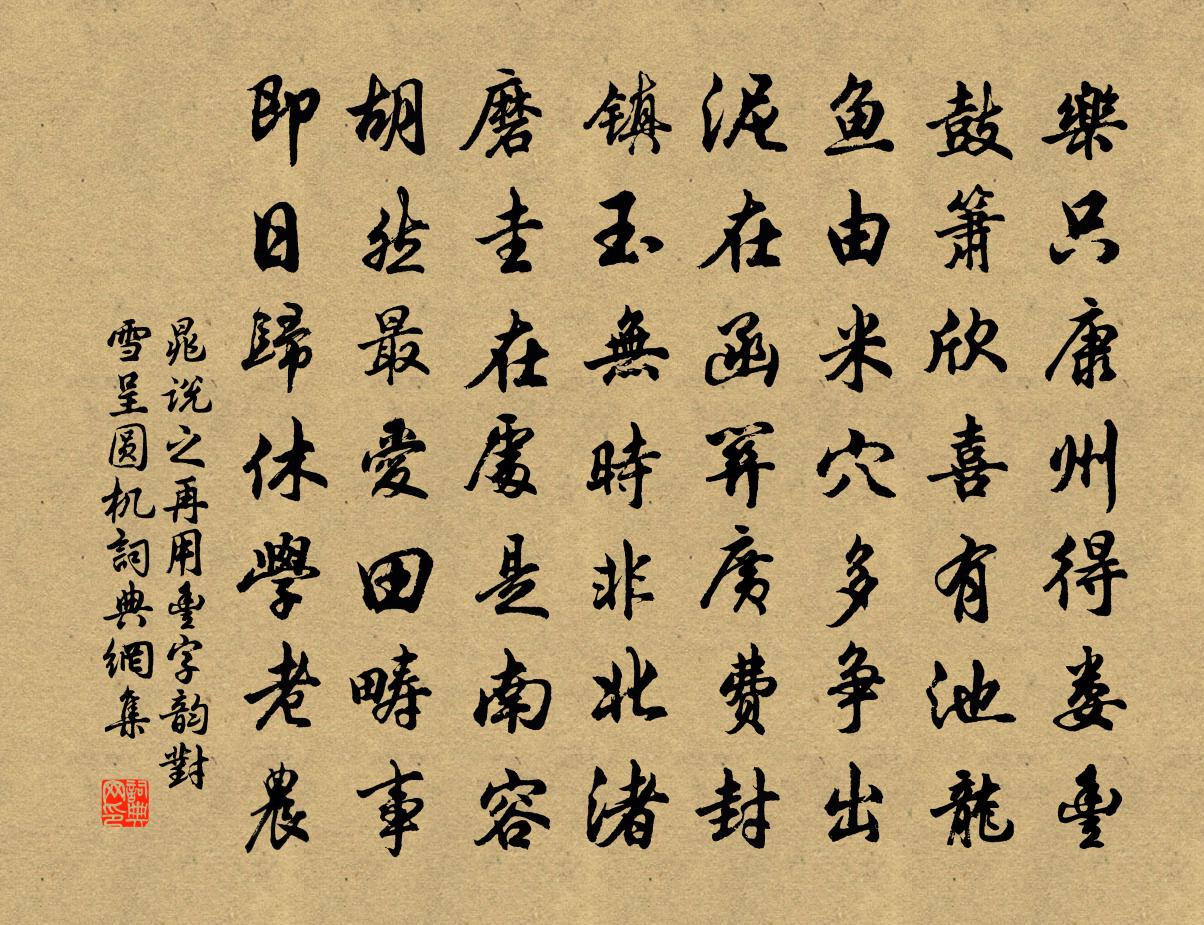 樂只康州得娄豐
鼓簫欣喜有池龍
鱼由米穴多争出
泥在函關廣費封
鎮玉無時非北渚
磨圭在處是南容
胡然最愛田疇事
即日歸休學老農
晁说之再用豐字韵對
雪呈圆机詞典網集
詞典网印